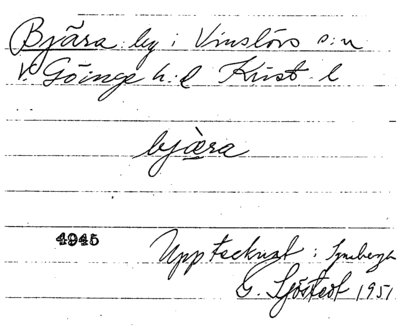 Bjära by i Vinslövs s:n
V. Göinge h.d Krist. l
bjàra
4945
Upptecknat i
G. Sjöstedt 1951